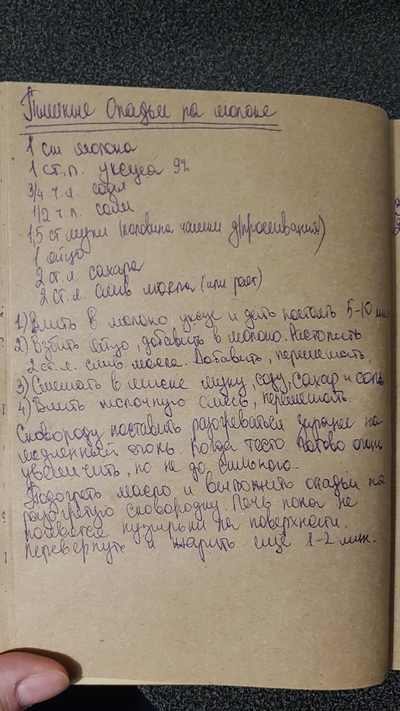 Пышные Оладьи на молоке
1 ст молока
1 ст.л. уксуса 9%
3/4 ч.л. соды
1/2 ч.л. соли
1,5 ст муки (половина чашки д/просеивания)
1 яйцо
2 ст.л. сахара
2 ст.л. слив масла (или раст)
1) Влить в молоко уксус и дать постоять 5-10 мин
2) Взбить яйцо, добавить в молоко. Растопить
2 ст.л. слив масла. Добавить, перемешать,
3) Смешать в миске муку, соду, сахар и соль
4) Влить молочную смесь, перемешать.
Сковороду поставить разогреваться заранее на
медленный огонь. Когда тесто готово огонь
увеличить, но не до сильного.
Подогреть масло и выложить оладьи на
разогретую сковородку. Печь пока не
появятся пузырьки на поверхности.
Перевернуть и жарить ещё 1-2 мин.